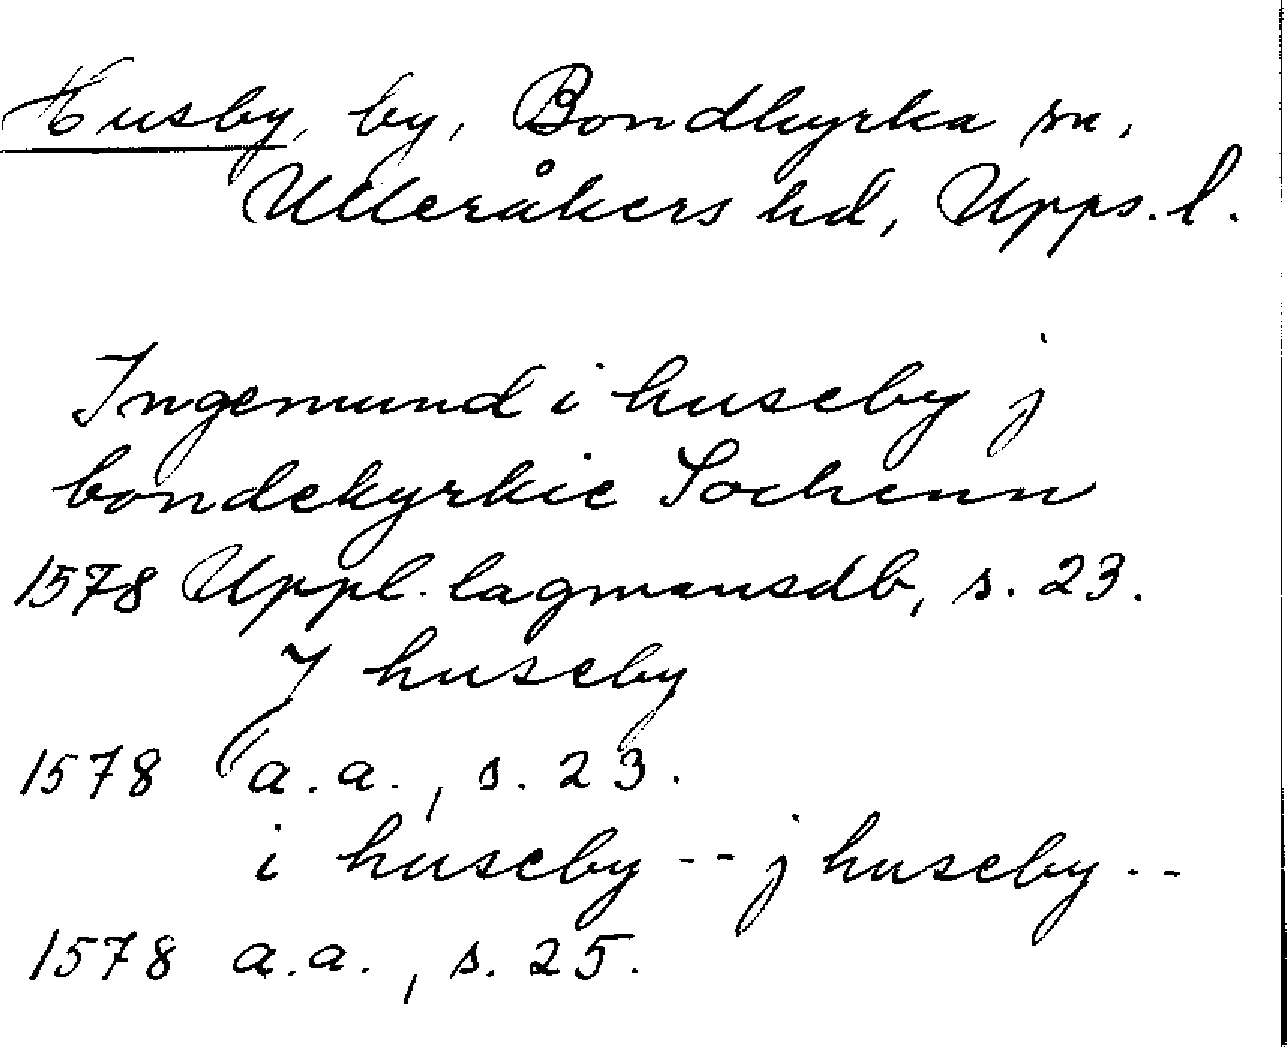 Husby, by, Bondkyrka sn,
Ulleråkers hd, Upps. l.
Ingemund i huseby j
bondekyrkie Sochenn
1578 Uppl. lagmansdb, s. 23.
J huseby
1578 a.a., s. 23.
i huseby -- j huseby --
1578 a.a., s. 25.